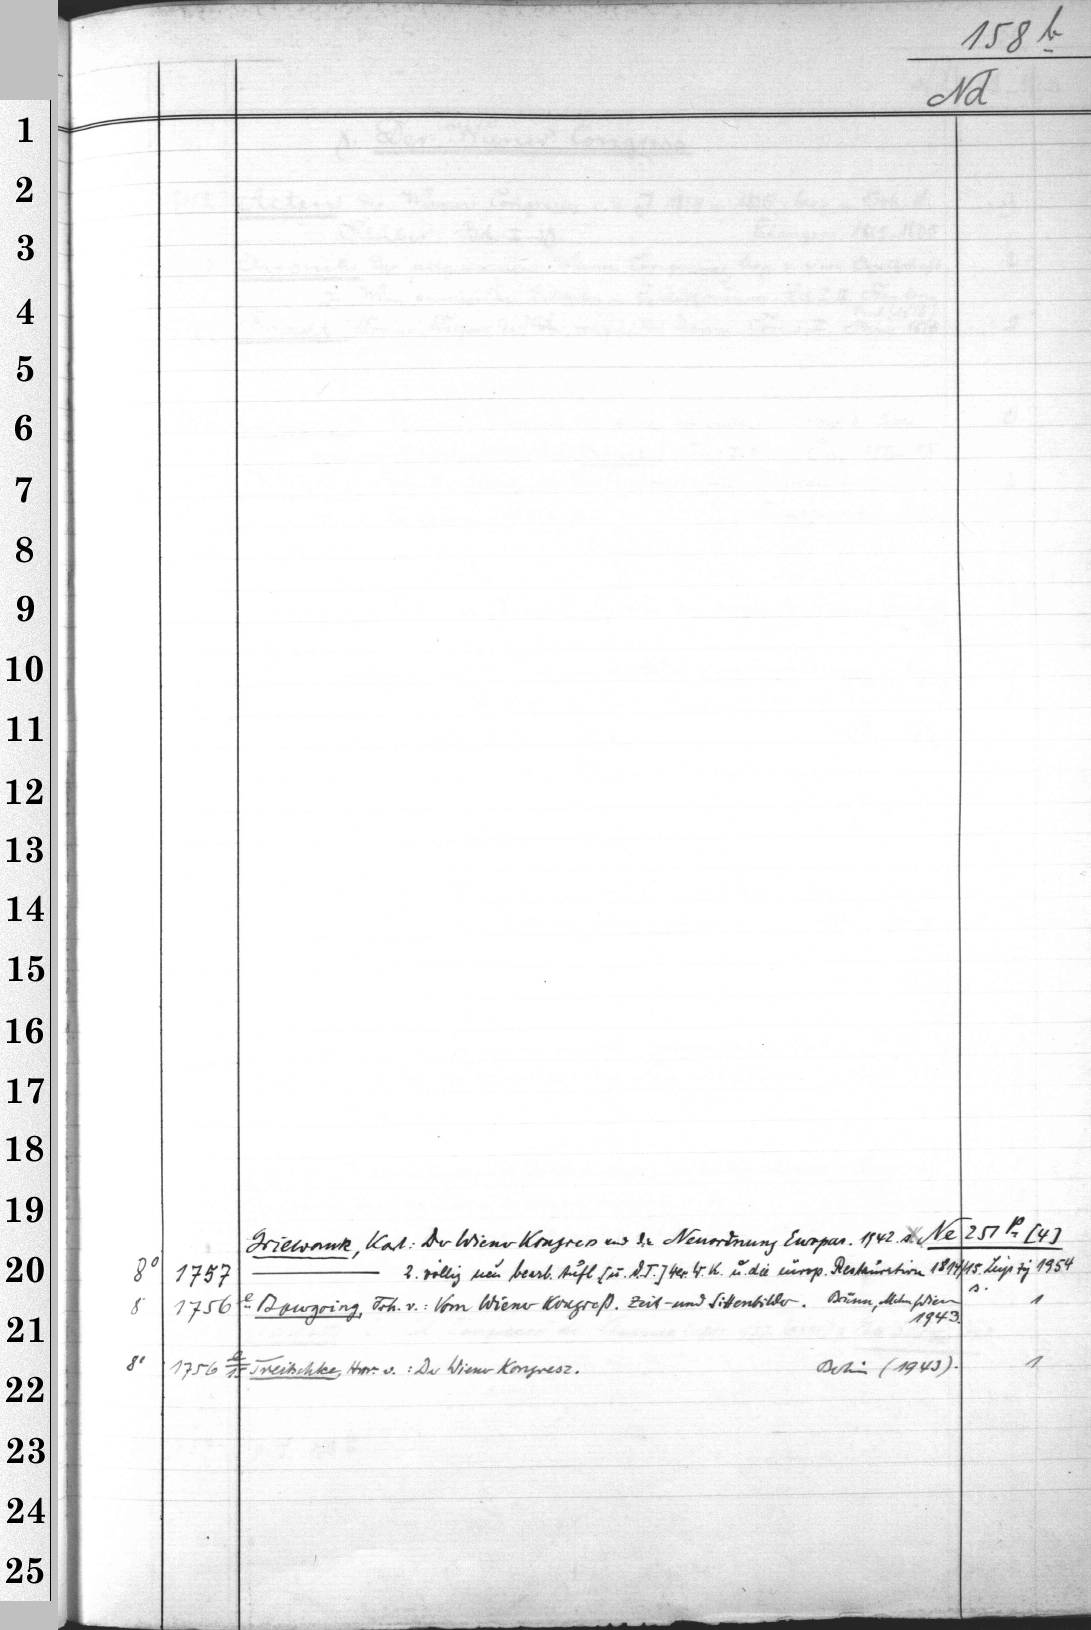 158 b
Nd
1
2
3
4
5
6
7
8
9
10
11
12
13
14
15
16
17
18
19
Griewank, Karl: Der Wiener Kongress und die Neuordnung Europas. 1942. s. Ne 251 [4]
20
8° 1757 ——— 2. völlig neu bearb. Aufl. [u. d. T.] Der W. K. u. die europ. Restauration 1814/15 Leipzig 1954
8 1756 e Bourgoing, Frh. v.: Vom Wiener Kongreß. Zeit- und Sittenbilder. Brünn, Wien 1
1943.
21
8° 1756 Treitschke, Hnr. v.: Der Wiener Kongress. Berlin (1943). 1
22
23
24
25